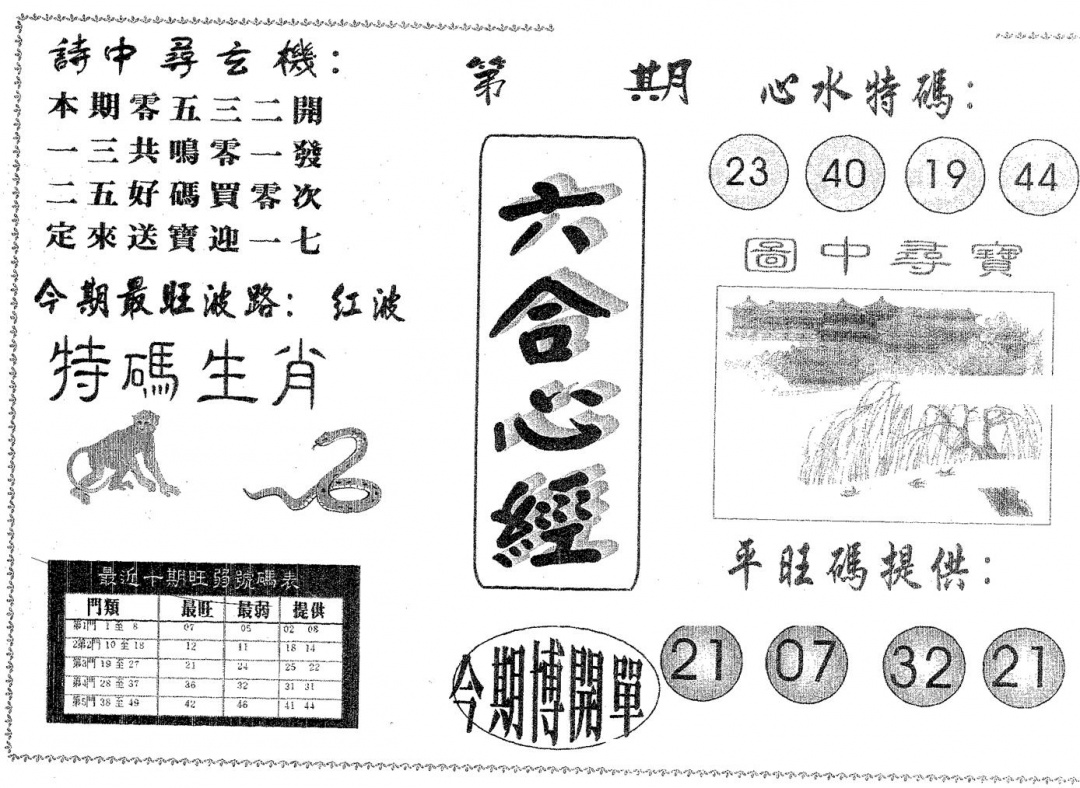 詩中尋玄機：
本期零五三二開
一三共鳴零一發
二五好碼買零次
定來送寶迎一七
今期最旺波路： 红波
特碼生肖
最近十期旺弱號碼表
門類 最旺 最弱 提供
第1門 1 至 8 07 05 02 08
第2門 10 至 18 12 11 18 14
第3門 19 至 27 21 24 25 22
第4門 28 至 37 36 32 31 31
第5門 38 至 49 42 46 41 44
第 期
六合心經
今期博開單
心水特碼：
23 40 19 44
圖中尋寶
平旺碼提供：
21 07 32 21